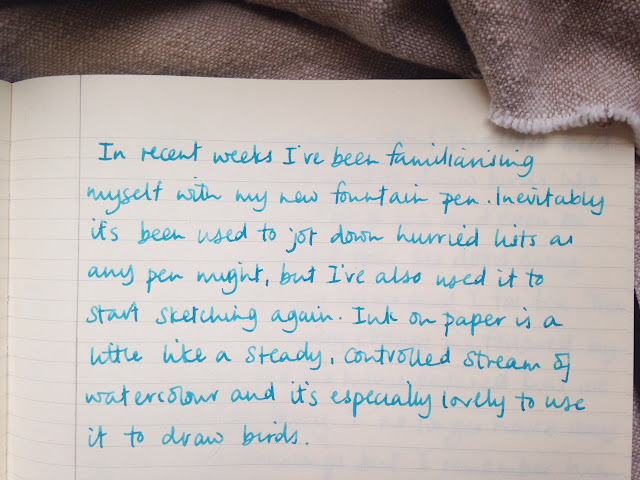 In recent weeks I've been familiarising
myself with my new fountain pen. Inevitably
it's been used to jot down hurried lists as
any pen might, but I've also used it to
start sketching again. Ink on paper is a
little like a steady, controlled stream of
watercolour and it's especially lovely to use
it to draw birds.